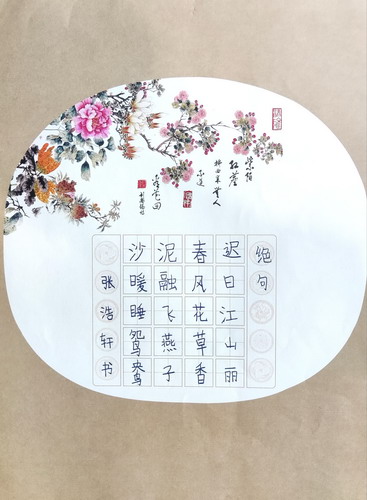 绝句
迟日江山丽
春风花草香
泥融飞燕子
沙暖睡鸳鸯
张浩轩书